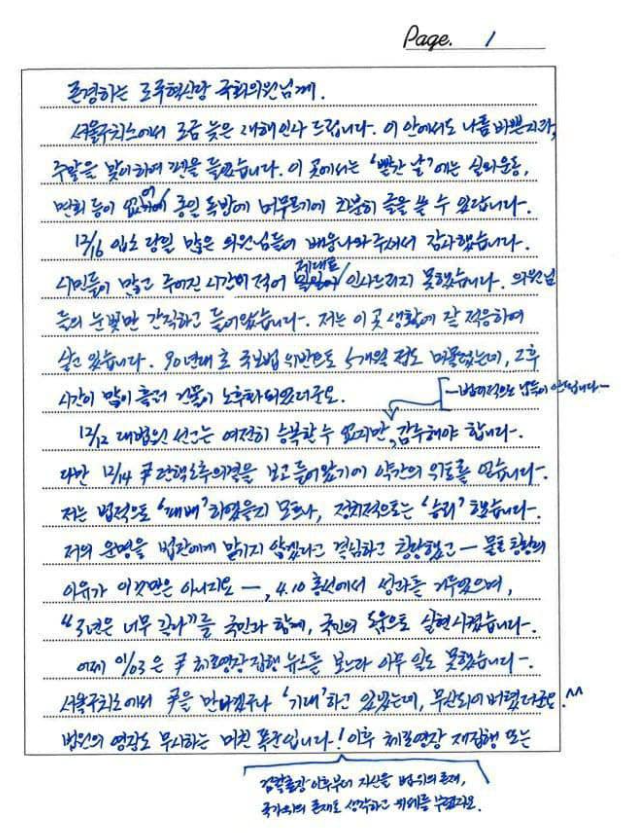 Page. 1
존경하는 조국혁신당 국회의원님께.
서울구치소에서 조금 늦은 새해인사 드립니다. 이 안에서도 나름 바쁜지라,
주말을 맞이하여 펜을 들었습니다. 이 곳에서는 '빨간 날'에는 실외운동,
면회 등이 없어 종일 독방에 머무르기에 차분히 글을 쓸 수 있답니다.
12/16 입소 당일 많은 의원님들이 배웅나와주셔서 감사했습니다.
시민들이 많고 주어진 시간이 적어 제대로 인사드리지 못했습니다. 의원님
들의 눈빛만 간직하고 들어왔습니다. 저는 이 곳 생활에 잘 적응하여
살고 있습니다. 90년대 초 국보법 위반으로 5개월 정도 머물렀는데, 그 후
시간이 많이 흘러 건물이 노후화되었더군요.
—법리적으로 납득이 안되나—
12/12 대법원 선고는 여전히 승복할 수 없지만, 감수해야 합니다.
다만 12/14 尹 탄핵소추의결을 보고 들어왔기에 약간의 위로를 얻습니다.
저는 법적으로 '패배'하였을지 모르나, 정치적으로는 '승리'했습니다.
저의 운명을 법관에게 맡기지 않겠다고 결심하고 창당했고— 물론 창당의
이유가 이것만은 아니지요 —, 4.10 총선에서 성과를 거두었으며,
"3년은 너무 길다"를 국민과 함께, 국민의 도움으로 실현시켰습니다.
어제 01/03은 尹 체포영장 집행 뉴스를 보느라 아무 일도 못했습니다.
서울구치소에서 尹을 만나겠구나 '기대'하고 있었는데, 무산되어 버렸더군요.^^
법원의 영장도 무시하는 미친 폭군입니다! 이후 체포영장 재집행 또는
검찰총장 이후부터 자신을 법 위의 존재,
국가 위의 존재로 생각하고 위세를 부렸지요.